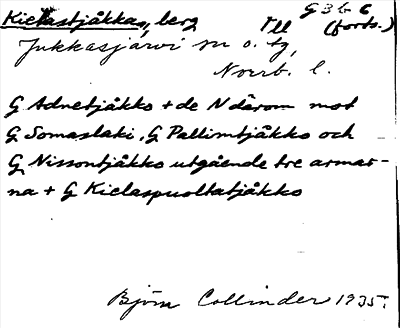 Kielastjåkkas, berg Till G 3 b C
(forts.)
Jukkasjärvi sn o. tg,
Norrb. l.
G Adnetjåkko + de N därom mot
G Somaslaki, G Pallimtjåkko och
G Nissontjåkko utgående tre armar-
na + G Kielaspuoltatjåkko
Björn Collinder 1935.